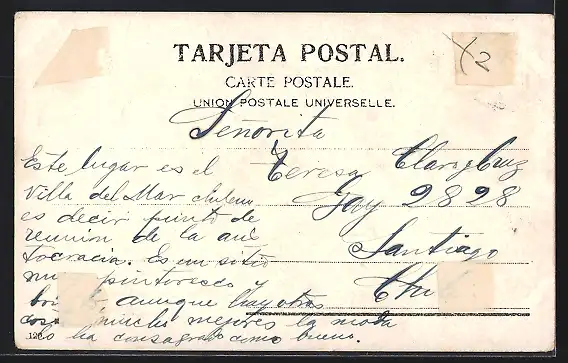 TARJETA POSTAL.
CARTE POSTALE.
UNION POSTALE UNIVERSELLE.
X2
Señorita
Teresa
Gay 2828
Santiago
Este lugar es el
Villa del Mar chileno
es decir punto de
reunion de la aris
tocracia. Es un sitio
pintoresco
aunque hay otros
mucho mejores la moda
lo ha consagrado como bueno.